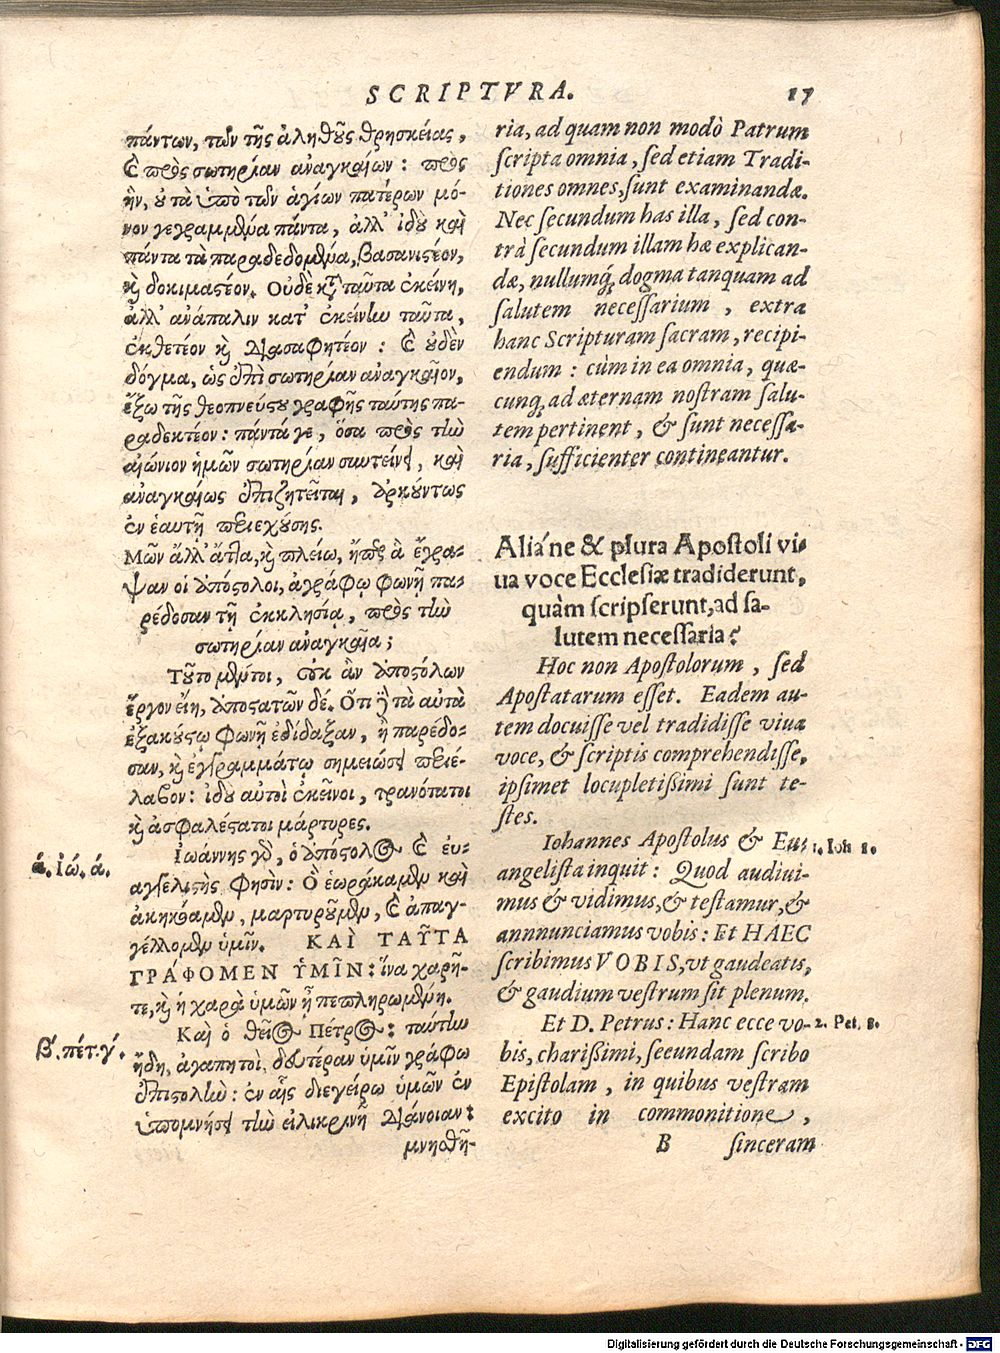 SCRIPTVRA.
17
πάντων, τῶν τῆς ἀληθοῦς θρησκείας,
καὶ πρὸς σωτηρίαν ἀναγκαίων: πρὸς
ἣν, οὐ τὰ ὑπὸ τῶν ἁγίων πατέρων μό-
νον γεγραμμένα πάντα, ἀλλ' ἰδοὺ καὶ
πάντα τὰ παραδεδομένα, βασανιστέον,
καὶ δοκιμαστέον. Οὐδὲ κατὰ ταῦτα ἐκείνη,
ἀλλ' ἀνάπαλιν κατ' ἐκείνην ταῦτα,
ἐκθετέον καὶ διασαφητέον: καὶ οὐδὲν
δόγμα, ὡς ἐπὶ σωτηρίαν ἀναγκαῖον,
ἔξω τῆς θεοπνεύστου γραφῆς ταύτης πα-
ραδεκτέον: πάντά γε, ὅσα πρὸς τὴν
αἰώνιον ἡμῶν σωτηρίαν συντείνει, καὶ
ἀναγκαίως ἐπιζητεῖται, ἀρκούντως
ἐν ἑαυτῇ περιεχούσης.
Μῶν ἄλλ' ἄττα, καὶ πλείω, ἤπερ ἃ ἔγρα-
ψαν οἱ ἀπόστολοι, ἀγράφῳ φωνῇ πα-
ρέδοσαν τῇ ἐκκλησίᾳ, πρὸς τὴν
σωτηρίαν ἀναγκαῖα;
Τοῦτο μέντοι, οὐκ ἂν ἀποστόλων
ἔργον εἴη, ἀποστατῶν δέ. Ὅτι γὰρ τὰ αὐτὰ
ἐξακούστῳ φωνῇ ἐδίδαξαν, ἢ παρέδο-
σαν, καὶ ἐγγραμμάτῳ σημειώσει περιέ-
λαβον: ἰδοὺ αὐτοὶ ἐκεῖνοι, τρανότατοι
καὶ ἀσφαλέστατοι μάρτυρες.
Ἰωάννης γοῦν, ὁ ἀπόστολος καὶ εὐ-
αγγελιστὴς φησὶν: Ὃ ἑωράκαμεν καὶ
ἀκηκόαμεν, μαρτυροῦμεν, καὶ ἀπαγ-
γέλλομεν ὑμῖν. ΚΑΙ ΤΑΥ͂ΤΑ
ΓΡΑΦΟΜΕΝ ὙΜΙ͂Ν: ἵνα χαρῆ-
τε, καὶ ἡ χαρὰ ὑμῶν ᾖ πεπληρωμένη.
Καὶ ὁ θεῖος Πέτρος: ταύτην
ἤδη, ἀγαπητοὶ, δευτέραν ὑμῖν γράφω
ἐπιστολὴν: ἐν αἷς διεγείρω ὑμῶν ἐν
ὑπομνήσει τὴν εἰλικρινῆ διάνοιαν:
μνησθῆ-
ά. Ἰώ. ά.
β΄. πέτ. γ΄.
ria, ad quam non modò Patrum
scripta omnia, sed etiam Tradi-
tiones omnes, sunt examinandæ.
Nec secundum has illa, sed con-
trà secundum illam hæ explican-
dæ, nullumq́; dogma tanquam ad
salutem necessarium, extra
hanc Scripturam sacram, recipi-
endum: cùm in ea omnia, quæ-
cunq; ad æternam nostram salu-
tem pertinent, & sunt necessa-
ria, sufficienter contineantur.
Alia'ne & plura Apostoli vi-
ua voce Ecclesiæ tradiderunt,
quàm scripserunt, ad sa-
lutem necessaria?
Hoc non Apostolorum, sed
Apostatarum esset. Eadem au-
tem docuisse vel tradidisse viua
voce, & scriptis comprehendisse,
ipsimet locupletißimi sunt te-
stes.
Iohannes Apostolus & Eu-
angelista inquit: Quod audiui-
mus & vidimus, & testamur, &
annnunciamus vobis: Et HAEC
scribimus VOBIS, vt gaudeatis,
& gaudium vestrum sit plenum.
Et D. Petrus: Hanc ecce vo-
bis, charißimi, seeundam scribo
Epistolam, in quibus vestram
excito in commonitione,
B sinceram
1. Ioh 1.
2. Pet. 3.
Digitalisierung gefördert durch die Deutsche Forschungsgemeinschaft - DFG